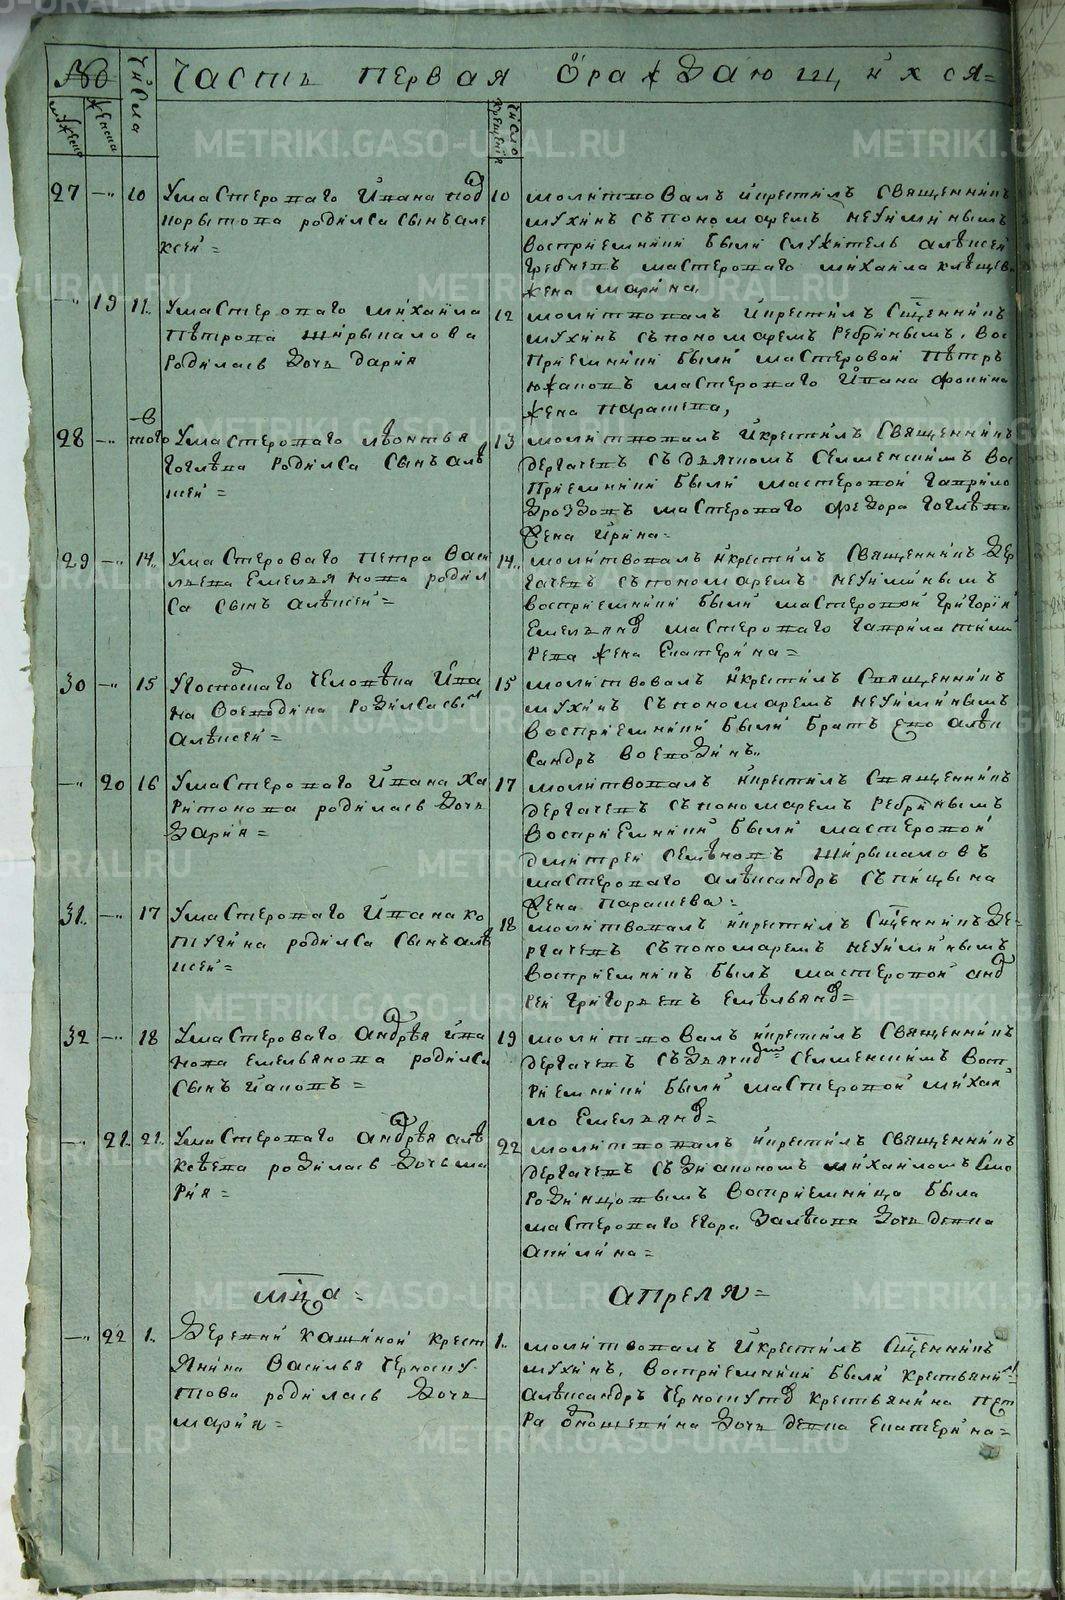 №
мужеска
женска
числа
Часть первая ѡраждающихся=
число крещенiя
27 —„ 10 Умастероваго Ивана под
корытова родился сынъ але
ксей=
10 молитвовалъ икрестилъ священникъ
мухинъ съпономаремъ неуиминымъ
восприемники были служитель алѣксей
гребневъ мастероваго михаила клѣщева
жена марина,
—„ 19 11. Умастероваго михаила
пѣтрова ширыкалова
родилась дочь дария
12 молитвовалъ икрестилъ Сщенникъ
мухинъ съпономаремъ ребринымъ, вос
приемники были мастеровой пѣтръ
южаковъ мастероваго Ивана фокина
жена парасцева,
28 —„ в
того Умастероваго лѣонтья
гоглѣва родился сынъ алѣ
ксей=
13 молитвовалъ икрестилъ Священникъ
дергачевъ съдьячкомъ селменскимъ во
приемники были мастеровой гаврило
дроздовъ мастероваго федора гоглѣва
жена ирина=
29 —„ 14. Умастероваго петра васи
льева Емельянова родил
ся сынъ алѣксей=
14. молитвовалъ икрестилъ Священникъ дер
гачевъ съпономаремъ неуиминымъ
восприемники были мастеровой григорий
Емельянов мастероваго гаврила тими
рева жена Екатерина=
30 —„ 15 Угосподскаго человѣка Ива
на воеводина родился сы
алѣксей=
15 молитвовалъ икрестилъ Священникъ
мухинъ съпономаремъ неуиминымъ
восприемники были братъ его алѣк
сандръ воеводинъ„
—„ 20 16 Умастероваго Ивана ха
ритонова родилась дочь
дария=
17 молитвовалъ икрестилъ Священникъ
дергачевъ съпономаремъ ребринымъ
восприемники были мастеровой
дмитрей семѣновъ ширыкаловъ
мастероваго алѣксандръ съпицына
жена парасцева=
31. —„ 17 Умастероваго Ивана ко
пту гина родился сынъ алѣ
ксей=
18 молитвовалъ икрестилъ Сщенникъ де-
ргачевъ съпономаремъ неуиминымъ
восприемникъ былъ мастеровой анд
рей григорьевъ Емѣльянов=
32 —„ 18 Умастероваго андрѣя ива
нова емельянова родился
сынъ иаковъ=
19 молитвовалъ икрестилъ Священникъ
дергачевъ съдьячком селменскимъ восп
риемники были мастеровой михаи
ло Емельянов=
—„ 21. 21. Умастероваго андрѣя алѣ
ксѣева родилась дочь ма
рия=
22 молитвовалъ икрестилъ священникъ
дергачевъ съдиакономъ михаиломъ Смо
родинцовымъ восприемница была
мастероваго Егора Залѣсова дочь девка
акилина=
мц̃а= апреля=
—„ 22 1. Деревни кашиной крест
янина василья черноску
това родилась дочь
мария=
1. молитвовалъ икрестилъ Сщенникъ
мухинъ, восприемники были крестьяни
алѣксандръ черноскутов крестьянина пет
ра бношевкина дочь девка Екатерина=